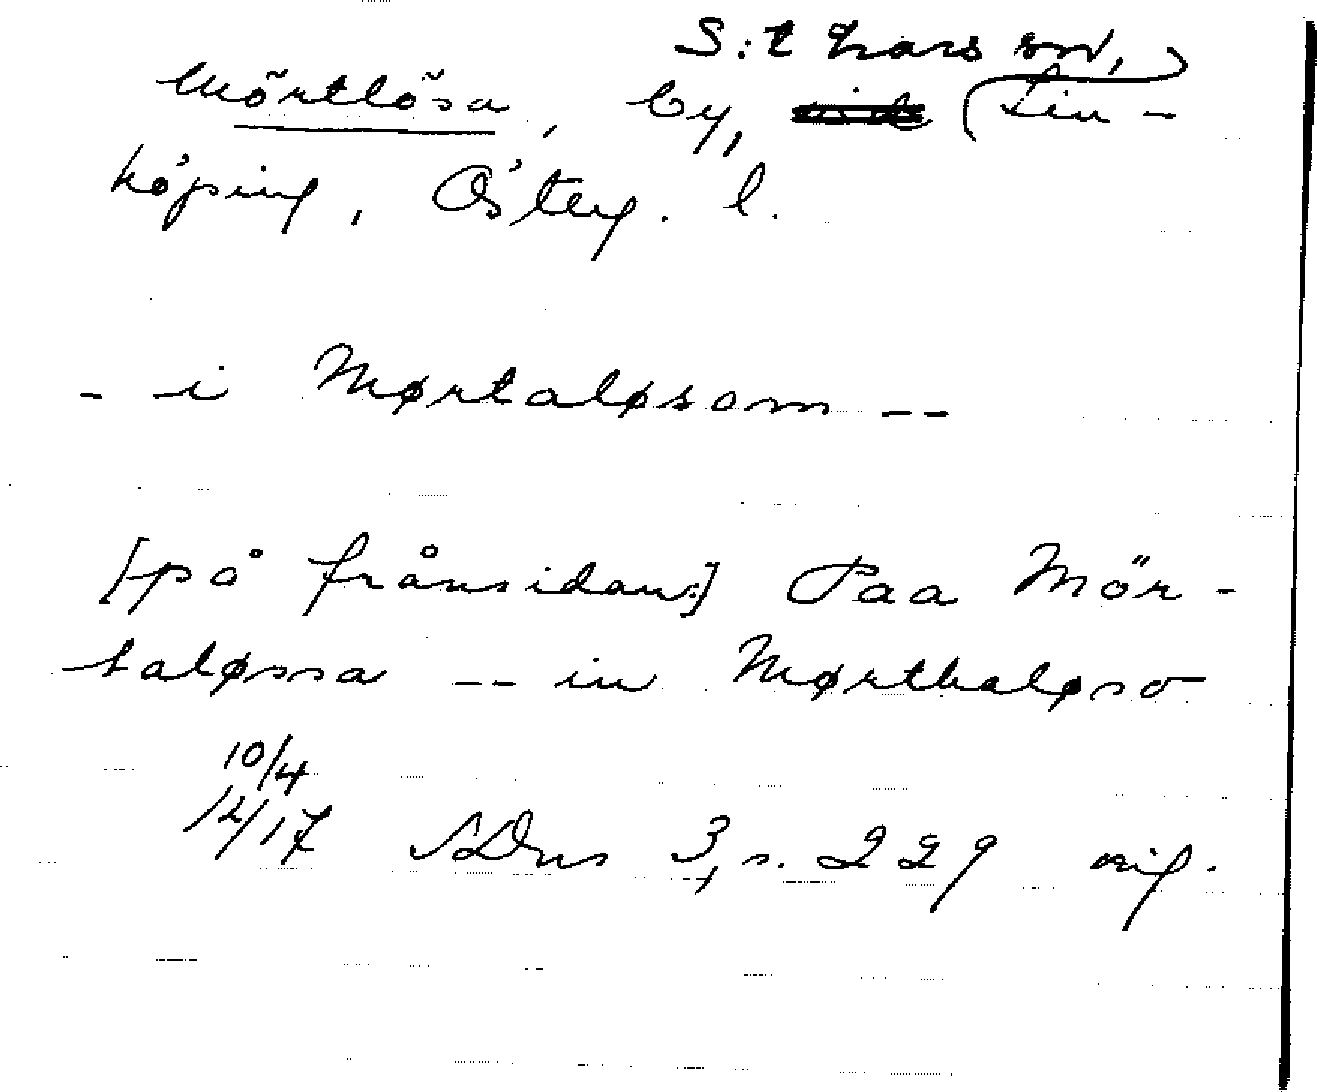 S:t Lars sn,
Mörtlösa, by, (Lin-
köping, Österg. l.
- - i Mørtaløsom - -
[på frånsidan:] Paa Mör-
taløssa - - in Mørthaløso
10/4
14/17 SDns 3, s. 229 orig.